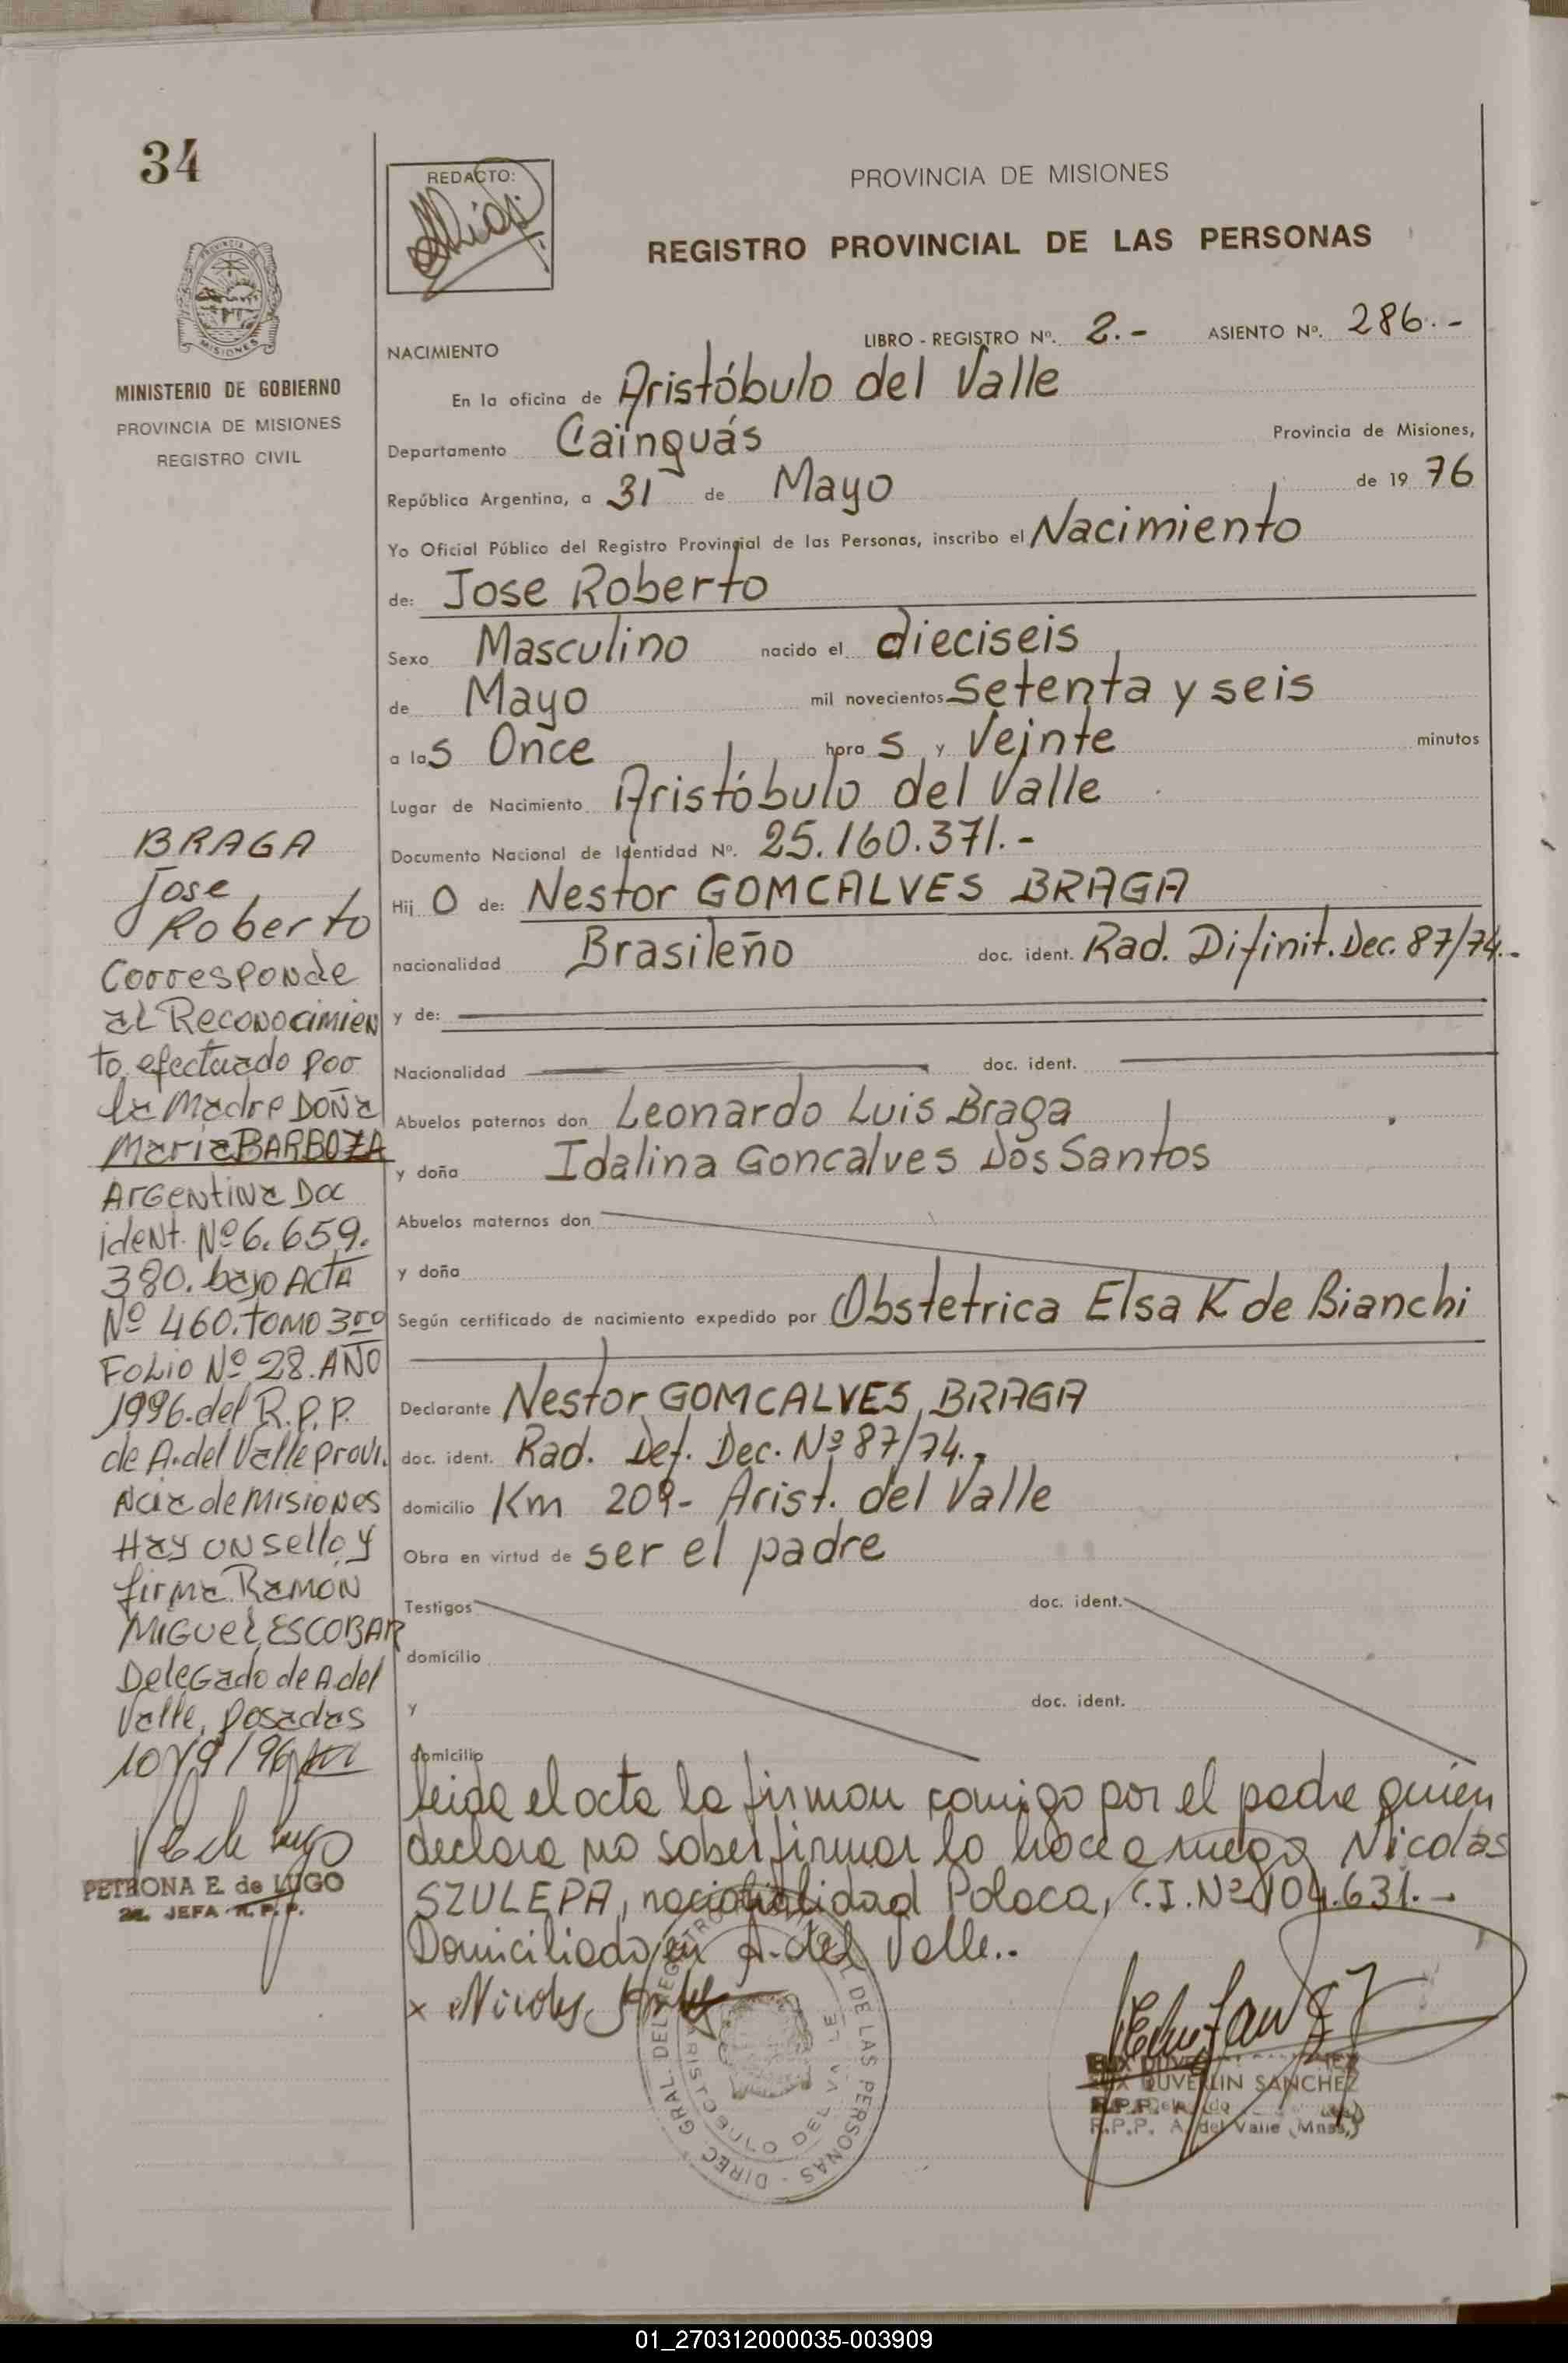 34
REDACTO:
PROVINCIA DE MISIONES
REGISTRO PROVINCIAL DE LAS PERSONAS
MISIONES
MINISTERIO DE GOBIERNO
PROVINCIA DE MISIONES
REGISTRO CIVIL
LIBRO - REGISTRO Nº. 2.- ASIENTO Nº. 286.-
NACIMIENTO
En la oficina de Aristóbulo del Valle
Departamento Cainguás Provincia de Misiones,
República Argentina, a 31 de Mayo de 19 76
Yo Oficial Público del Registro Provincial de las Personas, inscribo el Nacimiento
de: Jose Roberto
Sexo Masculino nacido el dieciseis
de Mayo mil novecientos setenta y seis
a las Once horas y Veinte minutos
Lugar de Nacimiento Aristóbulo del Valle
Documento Nacional de Identidad Nº. 25.160.371.-
Hijo de: Nestor GOMCALVES BRAGA
nacionalidad Brasileño doc. ident. Rad. Difinit. Dec. 87/74.-
y de:
Nacionalidad doc. ident.
Abuelos paternos don Leonardo Luis Braga
y doña Idalina Goncalves Dos Santos
Abuelos maternos don
y doña
Según certificado de nacimiento expedido por Obstetrica Elsa K de Bianchi
Declarante Nestor GOMCALVES BRAGA
doc. ident. Rad. Def. Dec. Nº 87/74.-
domicilio Km 209- Arist. del Valle
Obra en virtud de ser el padre
Testigos doc. ident.
domicilio
y doc. ident.
domicilio
leida el acta la firman comigo por el padre quien
declara no saber firmar lo hace a ruego Nicolas
SZULEPA, nacionalidad Polaca, C.I. Nº 104.631.-
Domiciliado en A. del Valle.-
x Nicolas
BRAGA
Jose
Roberto
Corresponde
al Reconocimien
to efectuado por
la Madre DOÑA
Maria BARBOZA
Argentina Doc
ident. Nº 6.659.
380. bajo Acta
Nº 460. TOMO 3ro
FOLIO Nº 28. AÑO
1996. del R.P.P.
de A. del Valle provi.
ncia de Misiones
Hay un sello y
firma Ramon
Miguel ESCOBAR
Delegado de A. del
Valle, Posadas
10/9/96
PETRONA E. de LUGO
2a. JEFA R.P.P.
DIREC. GRAL. DEL REGISTRO PROVINCIAL DE LAS PERSONAS
ARISTOBULO DEL VALLE
DUVERLIN SANCHEZ
R.P.P. A. del Valle (Mnes.)
01_270312000035-003909